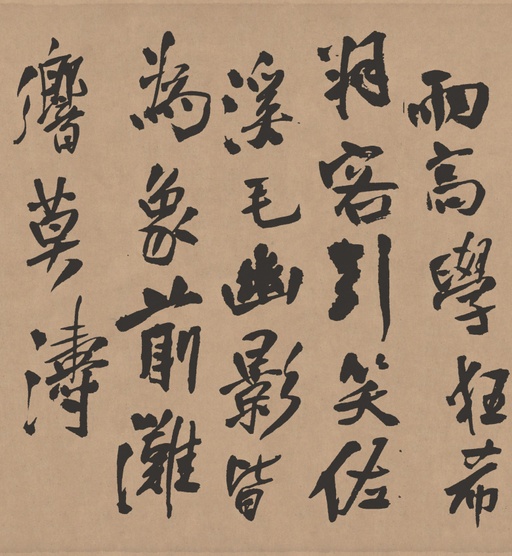 兩高學狂希
客引笑佐
溪毛幽影皆
為象前灘
響莫濤